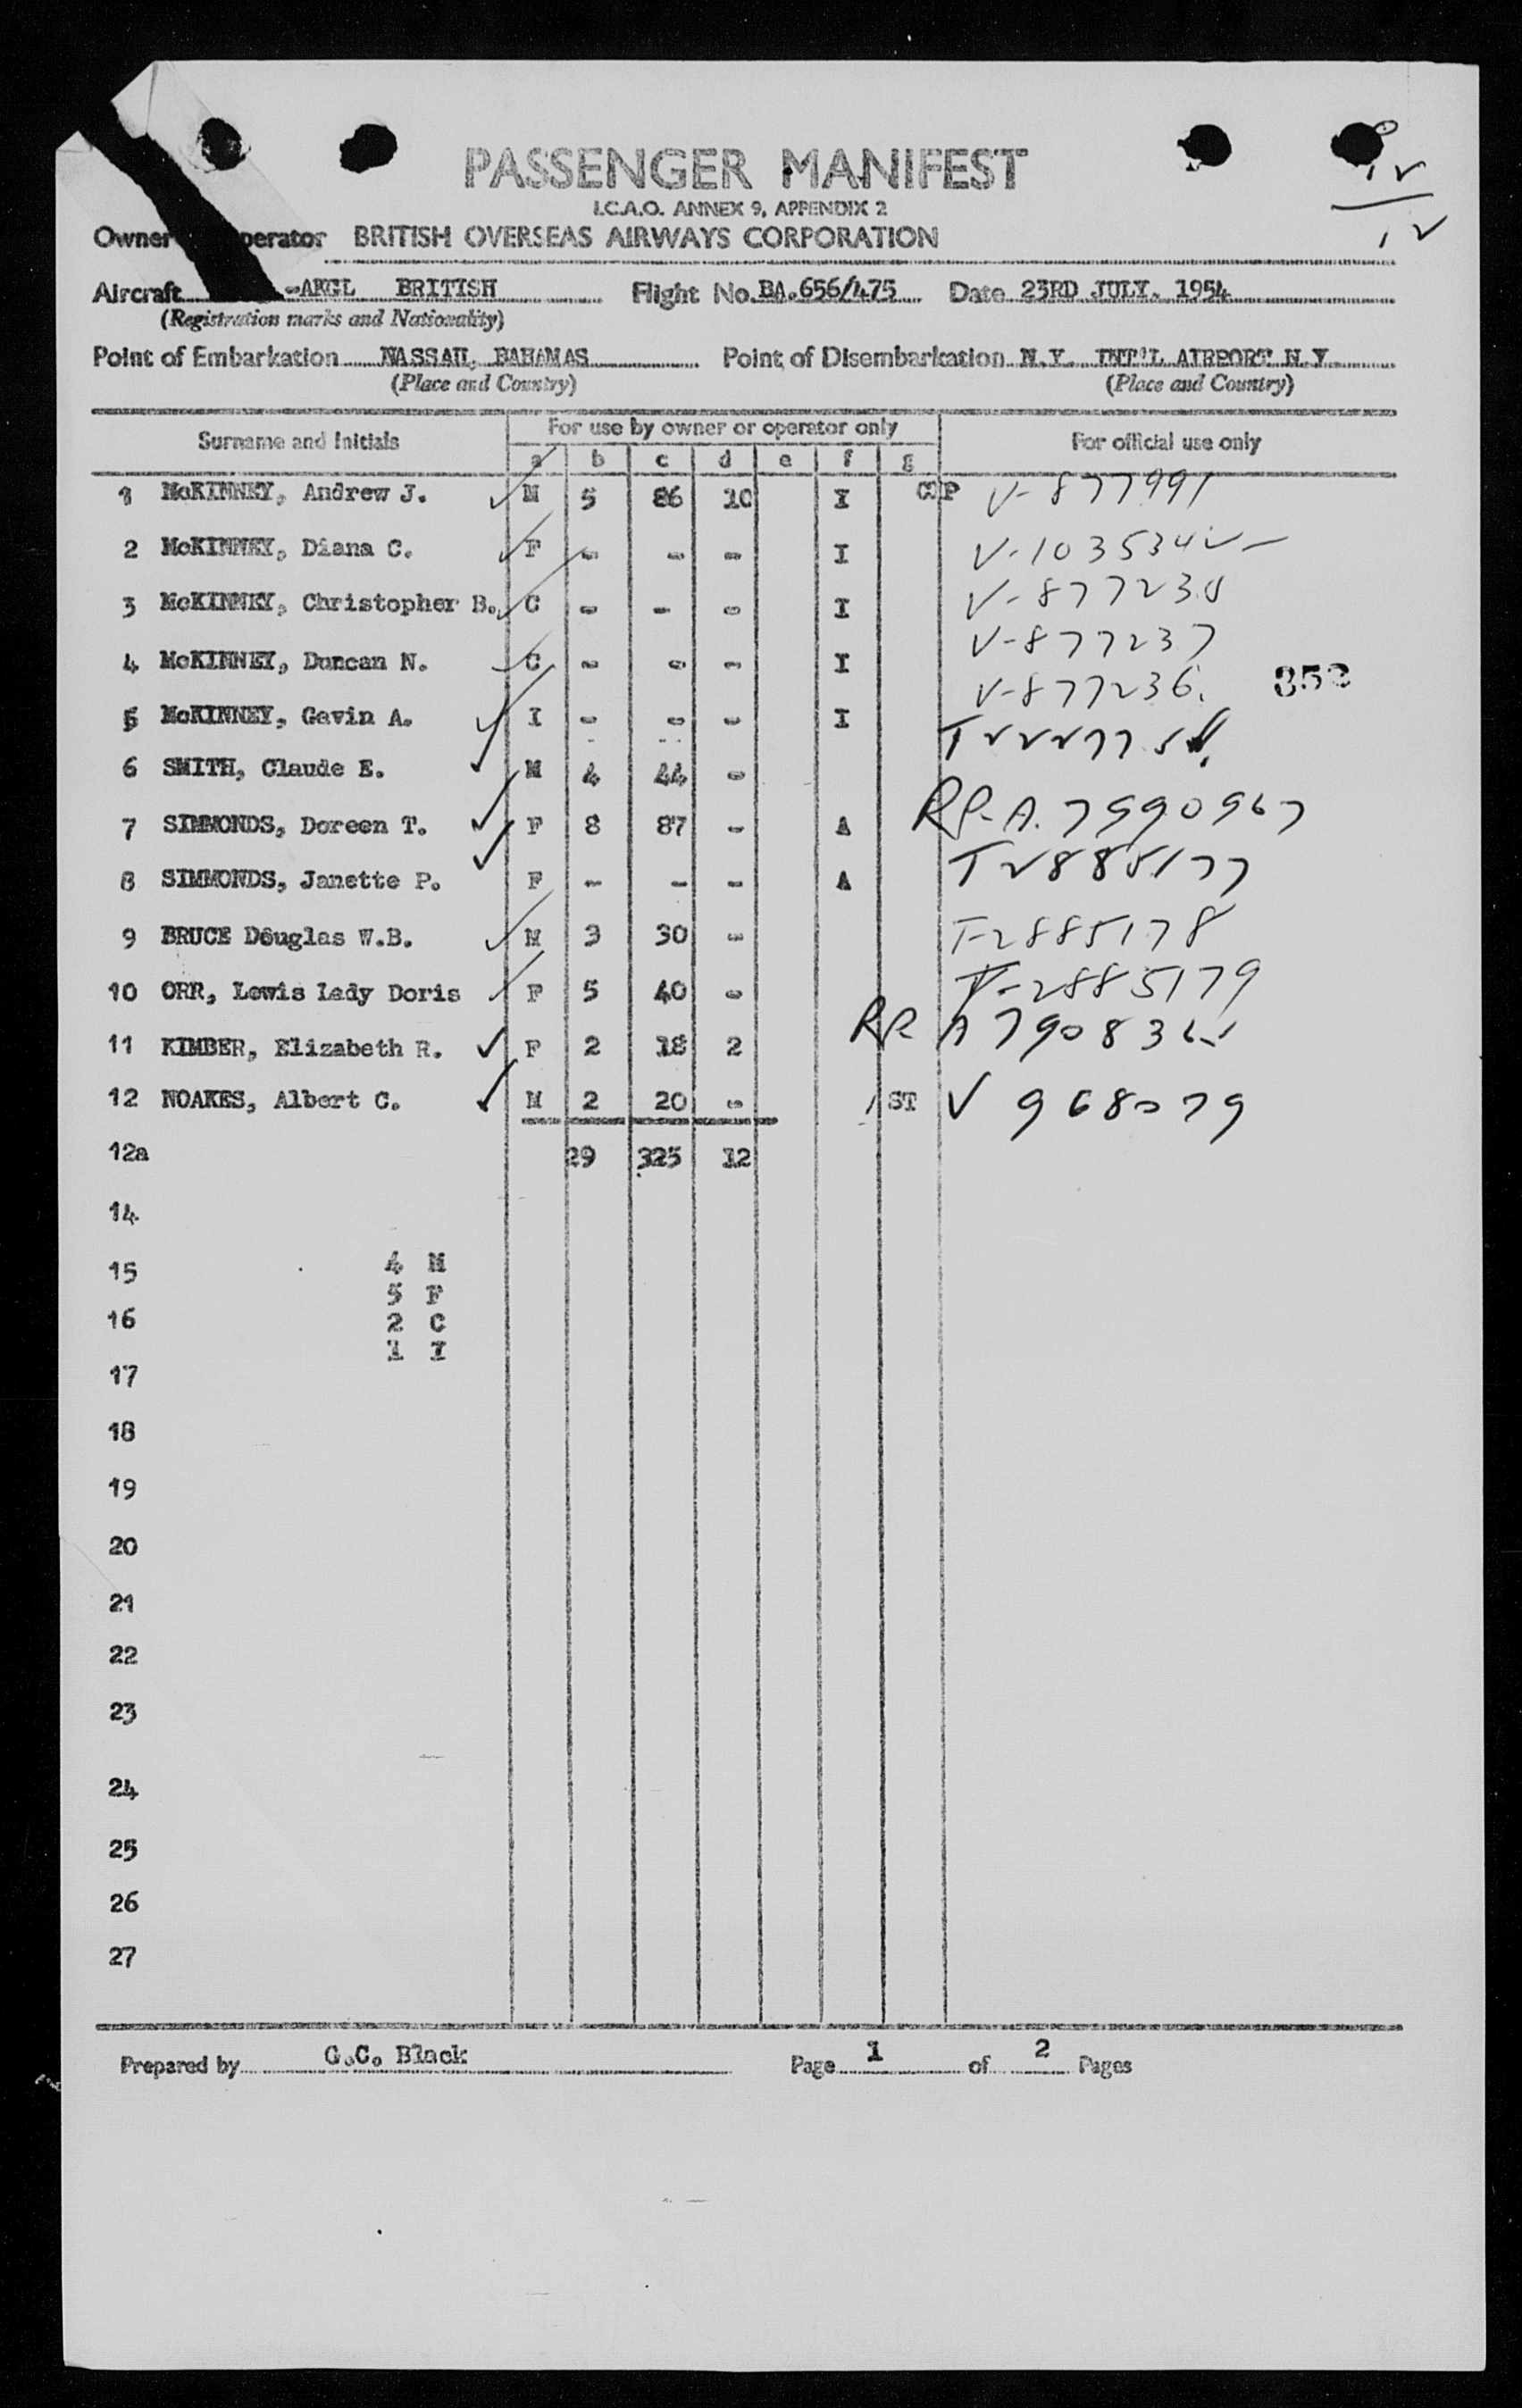 PASSENGER MANIFEST
I.C.A.O. ANNEX 9, APPENDIX 2
Owner perator BRITISH OVERSEAS AIRWAYS CORPORATION
Aircraft -AKGL BRITISH Flight No. BA.656/475 Date 23RD JULY. 1954
(Registration marks and Nationality)
Point of Embarkation NASSAU, BAHAMAS Point of Disembarkation N.Y. INT'L AIRPORT N.Y.
(Place and Country) (Place and Country)
Surname and Initials For use by owner or operator only For official use only
a b c d e f g
1 McKINNEY, Andrew J. M 5 86 10 I V-877991
2 McKINNEY, Diana C. F - - - I V-103534
3 McKINNEY, Christopher B. C - - - I
4 McKINNEY, Duncan N. C - - - I V-877237
5 McKINNEY, Gavin A. I - - - I V-877236.
352
6 SMITH, Claude E. M 4 44 -
7 SIMMONDS, Doreen T. F 8 87 - A A.7990967
8 SIMMONDS, Janette P. F - - - A T2885177
9 BRUCE Douglas W.B. M 3 30 - T-2885178
10 ORR, Lewis Lady Doris F 5 40 - 2885179
11 KIMBER, Elizabeth R. F 2 18 2
12 NOAKES, Albert C. M 2 20 - ST V 968079
12a 29 325 12
14
15 4 M
5 F
16 2 C
1 I
17
18
19
20
21
22
23
24
25
26
27
Prepared by G.C. Black Page 1 of 2 Pages